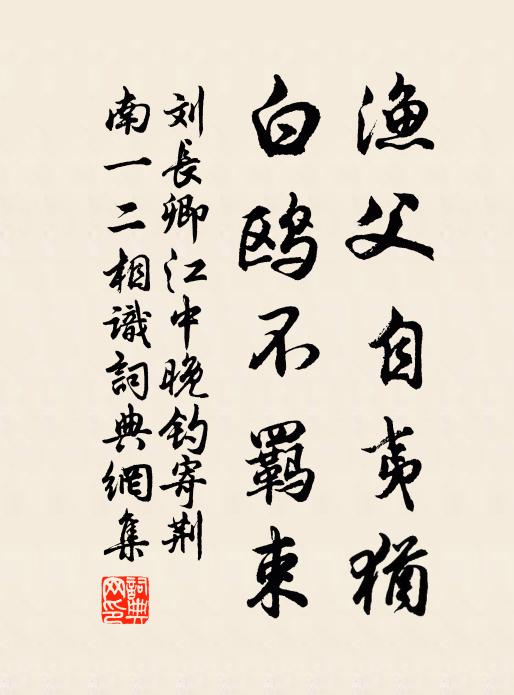 渔父自夷犹
白鸥不羁束
刘長卿江中晚钓寄荆
南一二相識詞典網集
詞典網印